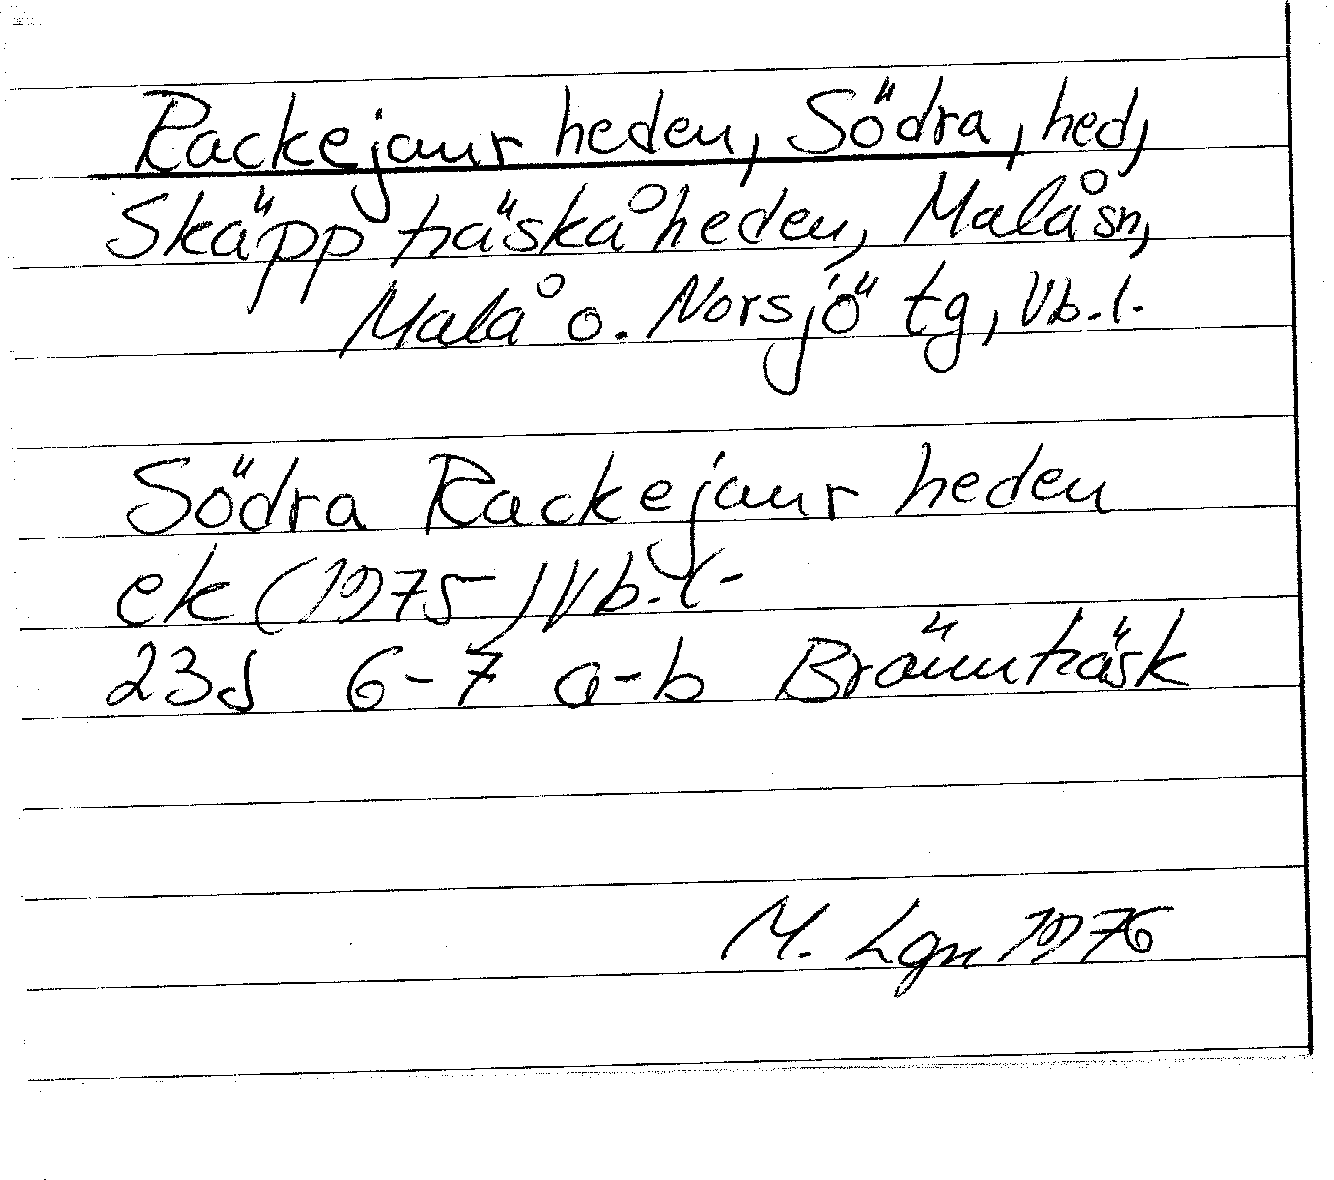 Rackejaur heden, Södra, hed,
Skäppträskåheden, Malå sn,
Malå o. Norsjö tg, Vb.l.
Södra Rackejaur heden
ek (1975) Vb.l.
23J 6-7 a-b Brännträsk
M. Lgn 1976